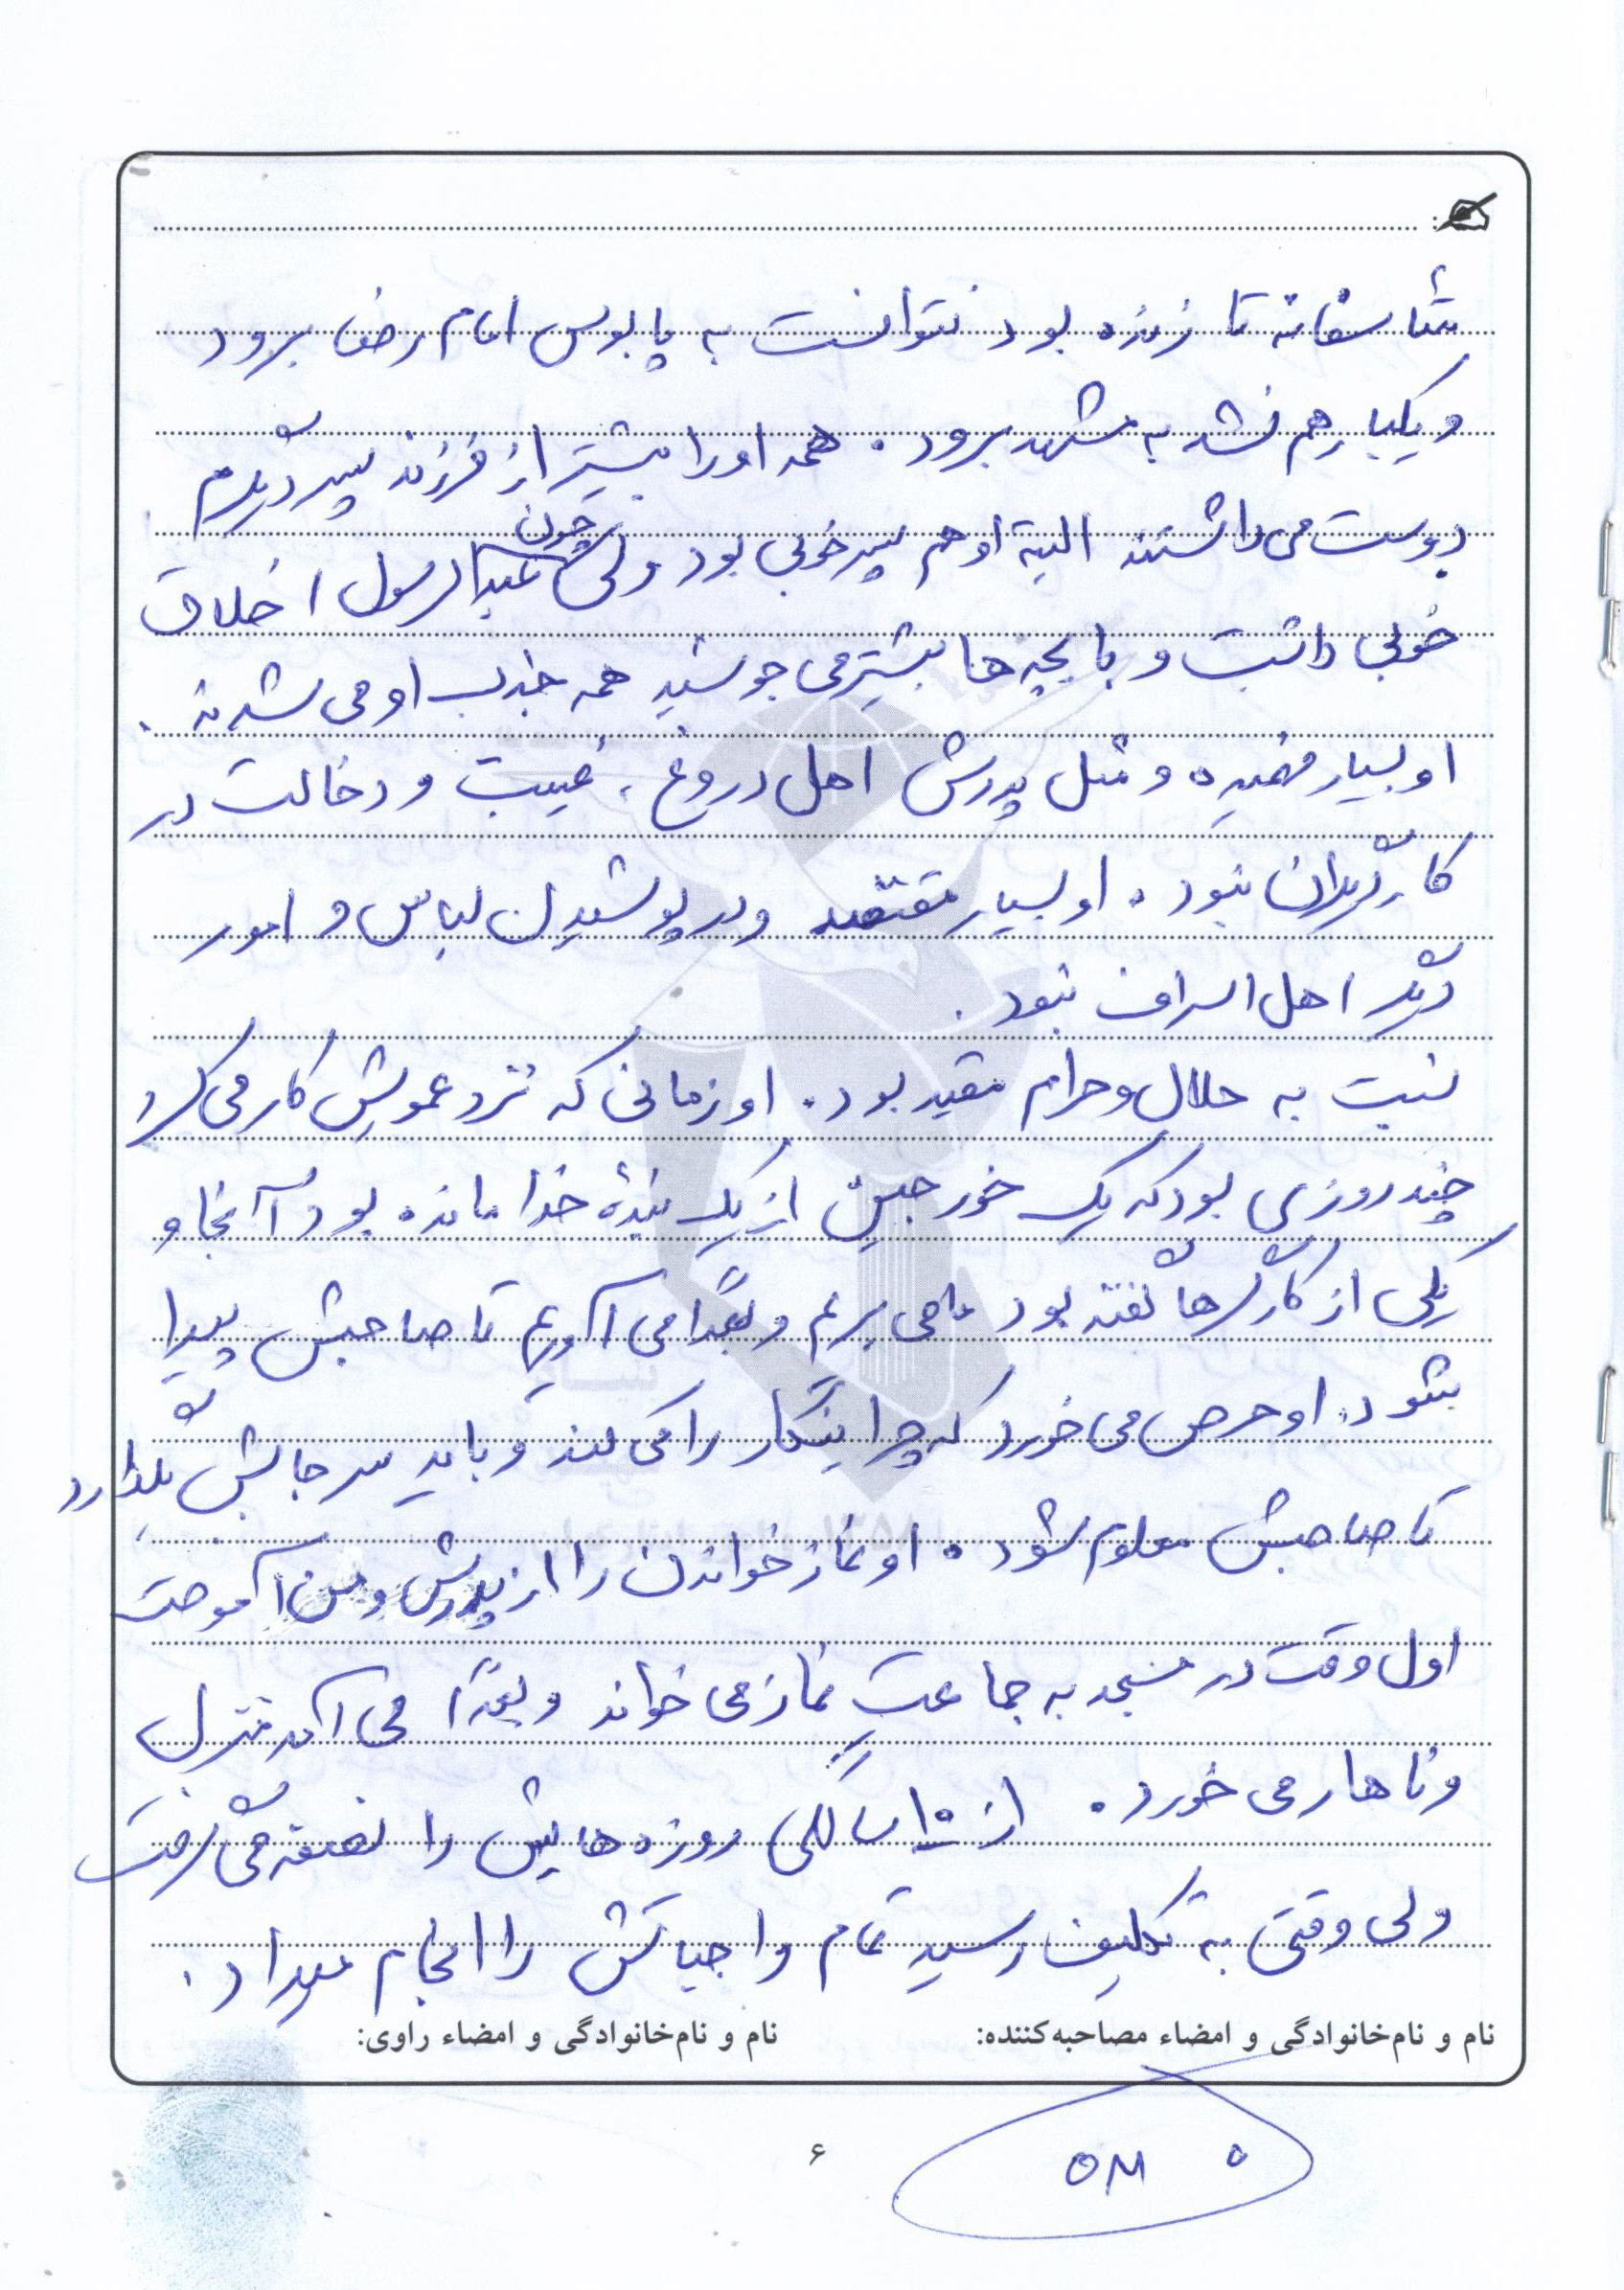 متأسفانه تا زنده بود نتوانست به پابوس امام رضا برود
و یکبار هم نشد به مشهد برود. همه او را بیشتر از فرزند پسر دیگرم
دوست می‌داشتند البته او هم پسر خوبی بود ولی چون عبدالرسول اخلاق
خوبی داشت و با بچه ها بیشتر می جوشید همه جذب او می شدند.
او بسیار فهمیده و مثل پدرش اهل دروغ، غیبت و دخالت در
کار دیگران نبود. او بسیار مقتصد و در پوشیدن لباس و امور
دیگر اهل اسراف نبود.
نسبت به حلال و حرام مقید بود. او زمانی که نزد عمویش کار می کرد
چند روزی بود که یک خورجین از یک بندۀ خدا مانده بود آنجا و
یکی از کارگرها گفته بود ما می بریم و بعداً می آوریم تا صاحبش پیدا
بشود. او حرص می خورد که چرا اینکار را می کند و باید سر جایش بگذارد
تا صاحبش معلوم شود. او نماز خواندن را از پدرش و من آموخت
اول وقت در مسجد به جماعت نماز می خواند و بعداً می آمد منزل
و ناهار می خورد. از ۱۰ سالگی روزه هایش را نصفه می گرفت
ولی وقتی به تکلیف رسید تمام واجباتش را انجام میداد.
نام و نام‌خانوادگی و امضاء مصاحبه‌کننده: نام و نام‌خانوادگی و امضاء راوی:
۶